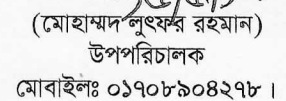 (মোহাম্মদ লুৎফর রহমান)
উপপরিচালক
মোবাইলঃ ০১৭০৮৯০৪২৭৮ ।